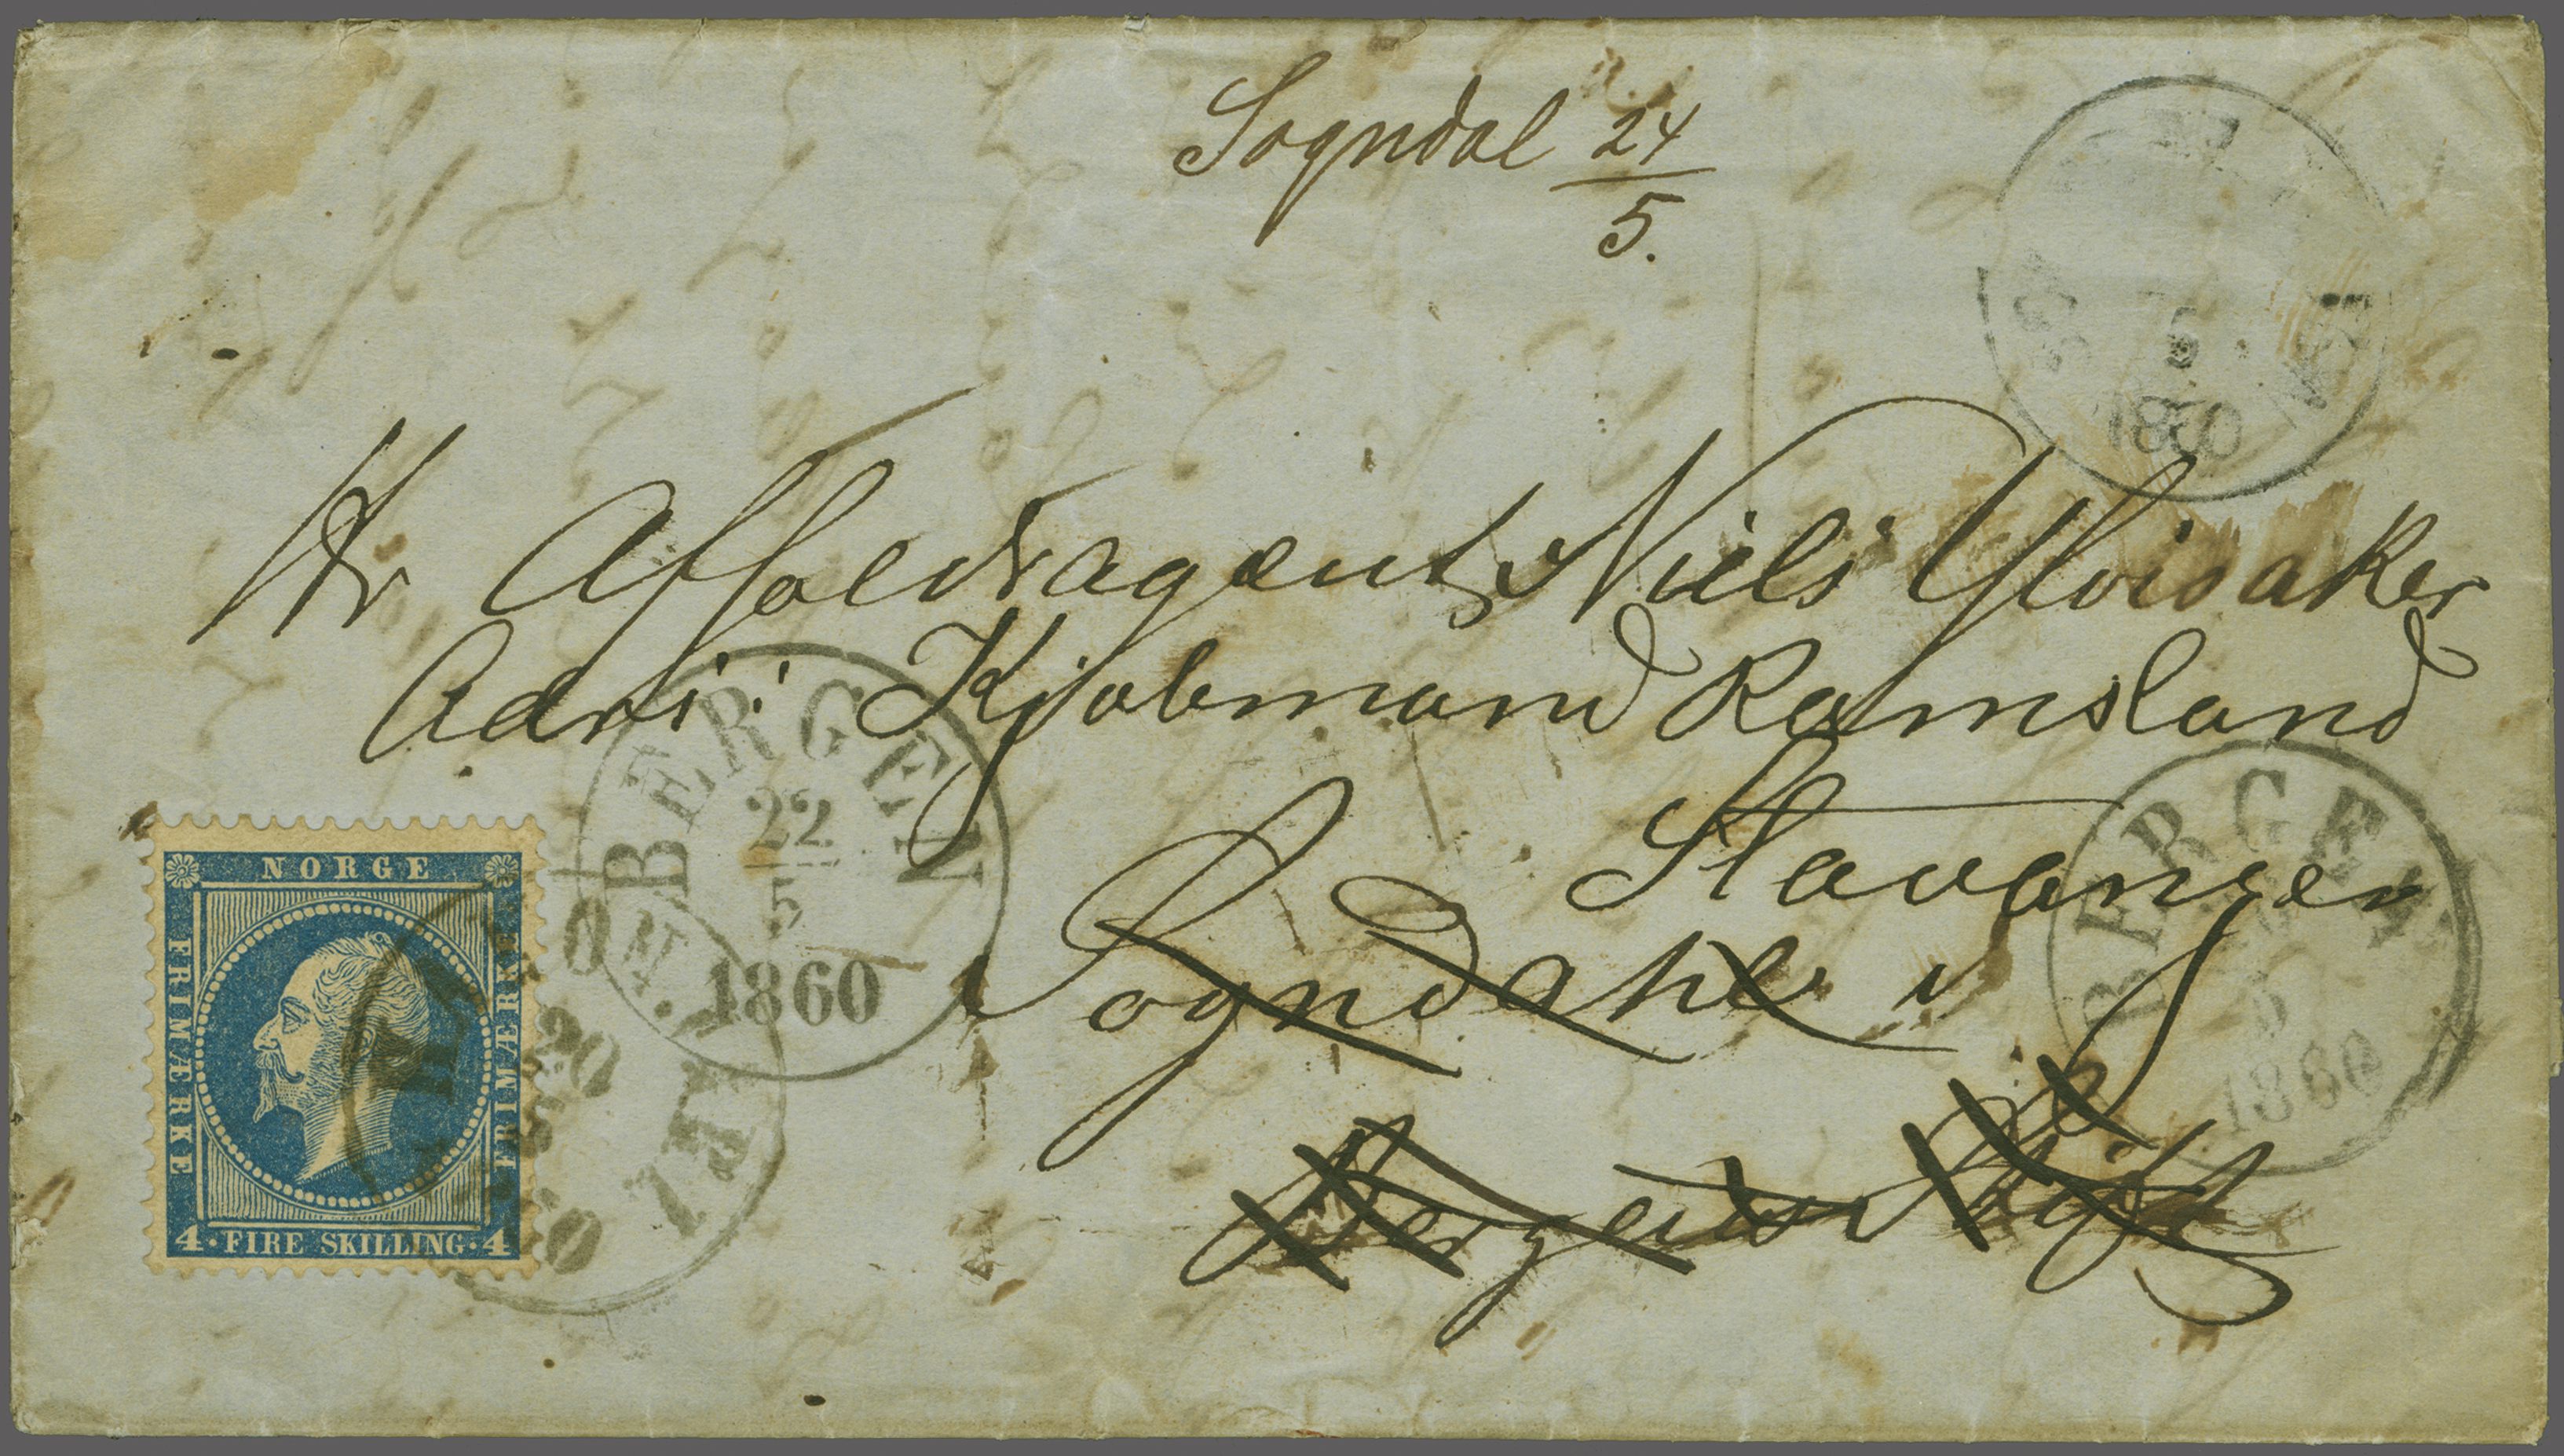 Sogndal 24/5.
1860
Hr Affoedragent, Niels Ylvisaker
Adrs: Kjøbmand Ramsland
Stavanger
Sogndahl i
Bergens Stift
BERGEN
22
5
1860
BERGEN
5
1860
20
5
NORGE
FRIMÆRKE
FRIMÆRKE
4·FIRE SKILLING·4